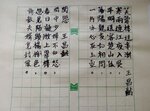 芙蓉樓送辛漸 王昌齡
寒雨連江夜入吳，
平明送客楚山孤。
洛陽親友如相問，
一片冰心在玉壺。
閨怨 王昌齡
閨中少婦不知愁，
春日凝妝上翠樓。
忽見陌頭楊柳色，
悔教夫婿覓封侯。